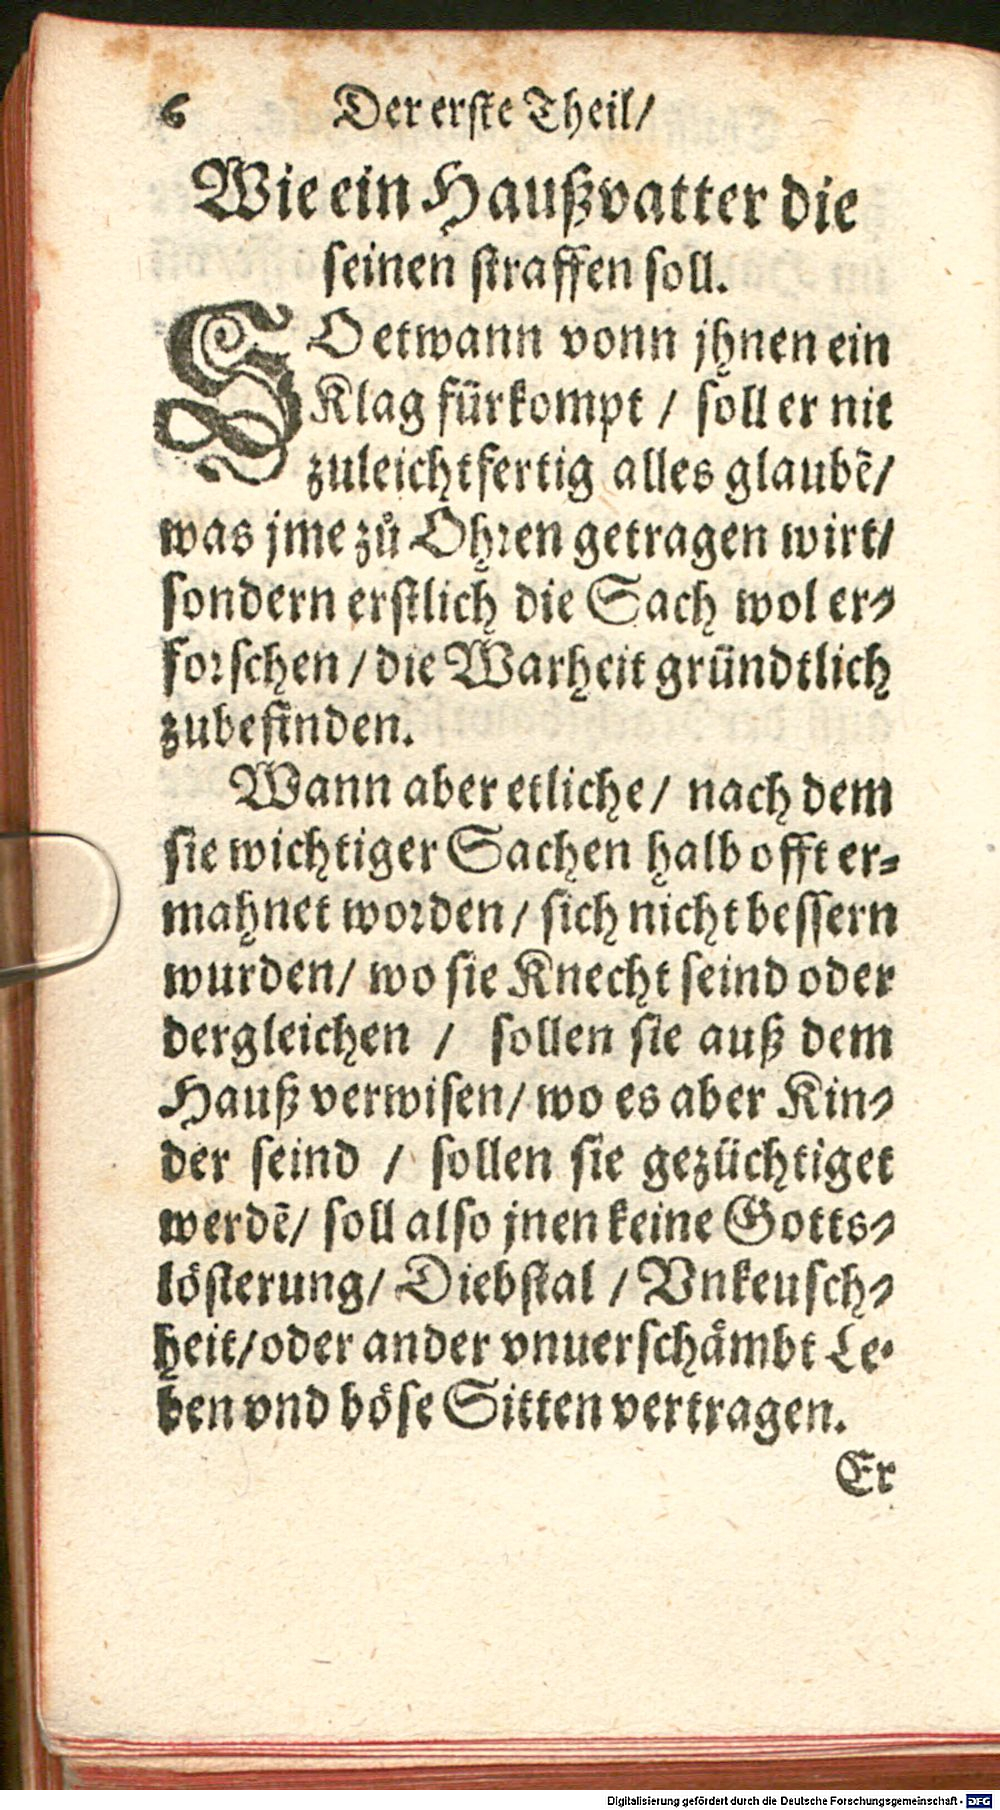 6 Der erste Theil/
Wie ein Haußvatter die
seinen straffen soll.
SO etwann vonn jhnen ein
Klag fürkompt / soll er nit
zuleichtfertig alles glaubẽ/
was jme zů Ohren getragen wirt/
sondern erstlich die Sach wol er-
forschen / die Warheit gründtlich
zubefinden.
Wann aber etliche / nach dem
sie wichtiger Sachen halb offt er-
mahnet worden / sich nicht bessern
wurden / wo sie Knecht seind oder
dergleichen / sollen sie auß dem
Hauß verwisen / wo es aber Kin-
der seind / sollen sie gezüchtiget
werdẽ / soll also jnen keine Gotts-
lösterung / Diebstal / Vnkeusch-
heit / oder ander vnuerschåmbt Le-
ben vnd böse Sitten vertragen.
Er
Digitalisierung gefördert durch die Deutsche Forschungsgemeinschaft - DFG